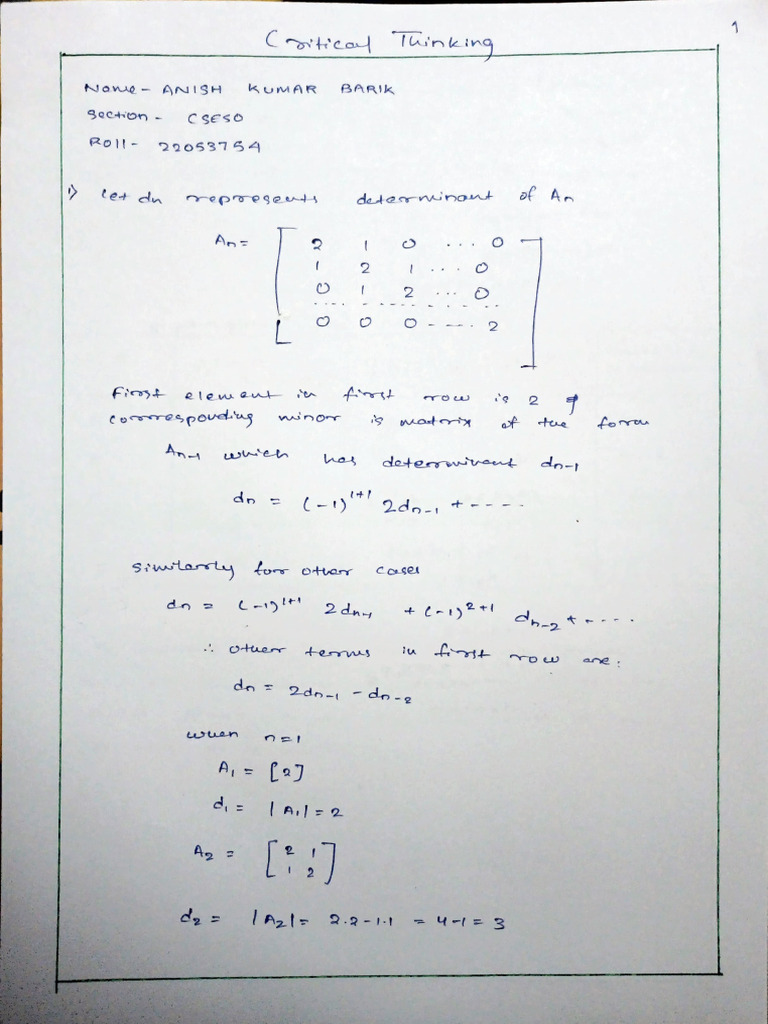 1
Critical Thinking
Name - ANISH KUMAR BARIK
Section - CSE50
Roll - 22053754
1) Let dn represents determinant of An
An = [ 2 1 0 ... 0
1 2 1 ... 0
0 1 2 ... 0
... ... ... ...
0 0 0 - - - - 2 ]
First element in first row is 2 &
corrresponding minor is matrix of the form
An-1 which has determinant dn-1
dn = (-1)^1+1 2dn-1 + - - - -
Similarly for other cases
dn = (-1)^1+1 2dn-1 + (-1)^2+1 dn-2 + - - - -
∴ other terms in first row are:
dn = 2dn-1 - dn-2
when n=1
A1 = [2]
d1 = |A1| = 2
A2 = [ 2 1
1 2 ]
d2 = |A2| = 2.2-1.1 = 4-1 = 3